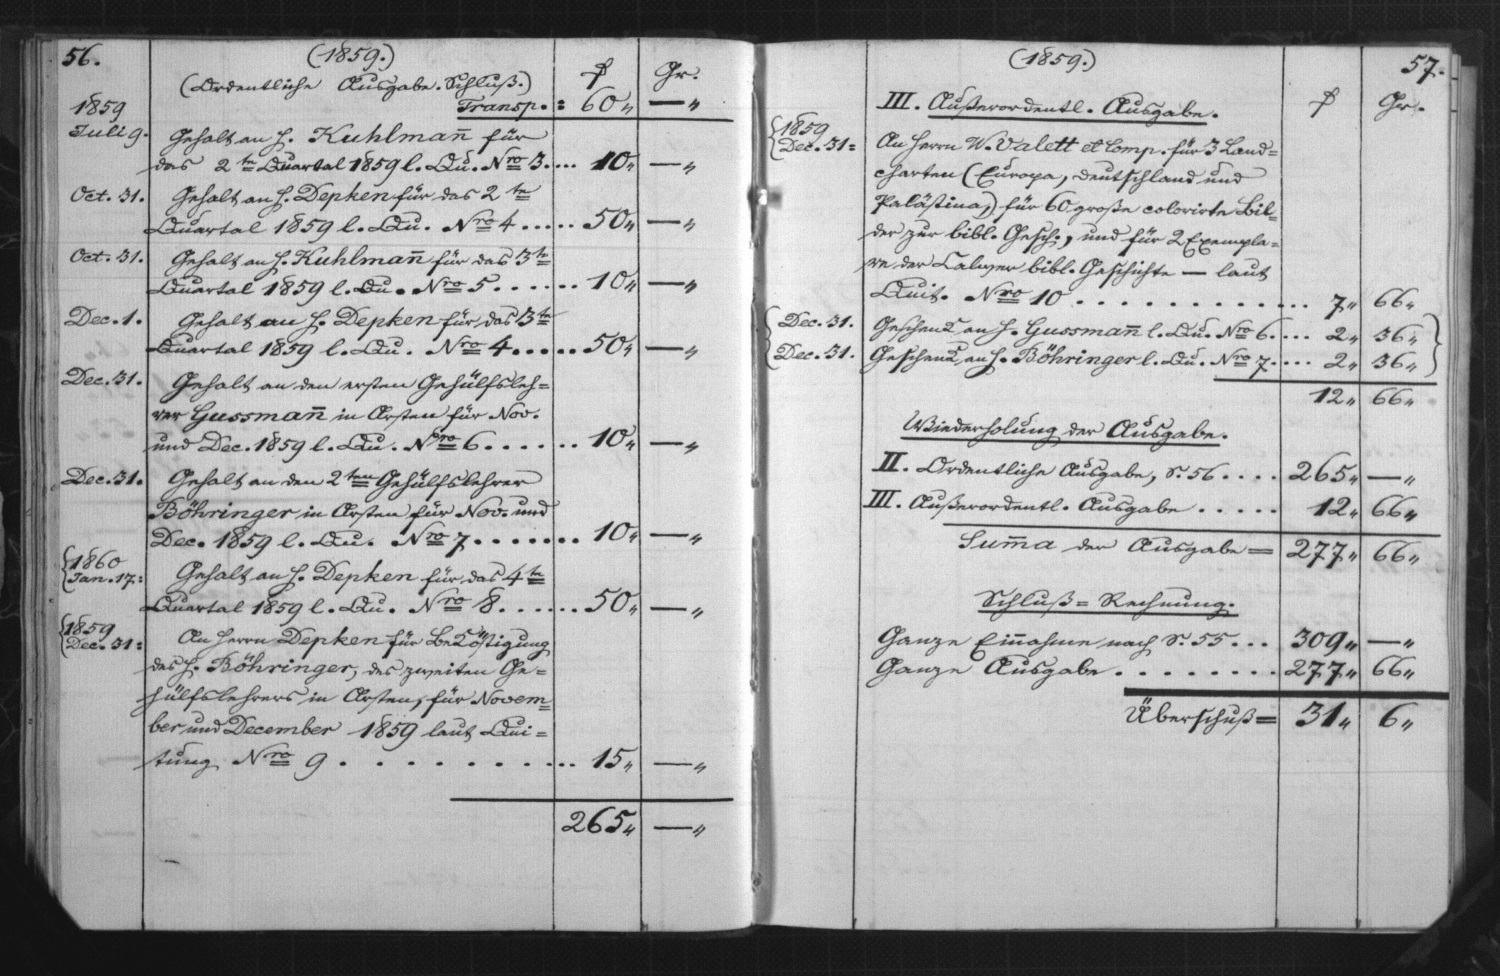 56.
(1859.)
(Ordentliche Ausgabe. Schluß.) ₰ Gr.
Transp. : 60 „ — „
1859
Juli 9. Gehalt an H. Kuhlman̄ für
das 2te Quartal 1859 l. Qu. Nro 3. ... 10 „ — „
Oct. 31. Gehalt an H. Depken für das 2te
Quartal 1859 l. Qu. Nro 4 ..... 50 „ — „
Oct. 31. Gehalt an H. Kuhlman̄ für das 3te
Quartal 1859 l. Qu. Nro 5 ...... 10 „ — „
Dec. 1. Gehalt an H. Depken für das 3te
Quartal 1859 l. Qu. Nro 4 ..... 50 „ — „
Dec. 31. Gehalt an den ersten Gehülfsleh=
rer Gussman̄ in Arsten für Nov.
und Dec. 1859 l. Qu. Nro 6 ...... 10 „ — „
Dec. 31. Gehalt an den 2ten Gehülfslehrer
Böhringer in Arsten für Nov. und
Dec. 1859 l. Qu. Nro 7 ....... 10 „ — „
1860
Jan. 17: Gehalt an H. Depken für das 4te
Quartal 1859 l. Qu. Nro 8 ...... 50 „ — „
1859
Dec. 31: An Herrn Depken für Beköstigung
des H. Böhringer, des zweiten Ge=
hülfslehrers in Arsten, für Novem=
ber und December 1859 laut Qui=
tung Nro 9 ......... 15 „ — „
265 „ — „
(1859.)
57.
III. Außerordentl. Ausgabe. ₰ Gr.
1859
Dec. 31= An Herrn W. Valett et Comp. für 3 Land=
charten (Europa, Deutschland und
Palästina,) für 60 große colorirte Bil=
der zur bibl. Gesch., und für 2 Exempla=
re der Calwer bibl. Geschichte — laut
Quit. Nro 10 ............ 7 „ 66 „
Dec. 31. Geschenk an H. Gussman̄ l. Qu. Nro 6 .... 2 „ 36 „
Dec. 31. Geschenk an H. Böhringer l. Qu. Nro 7 .... 2 „ 36 „
12 „ 66 „
Wiederholung der Ausgabe.
II. Ordentliche Ausgabe, S. 56 .... 265 „ — „
III. Außerordentl. Ausgabe ..... 12 „ 66 „
Sum̄a der Ausgabe = 277 „ 66 „
Schluß = Rechnung.
Ganze Ein̄ahme nach S. 55 ... 309 „ — „
Ganze Ausgabe ......... 277 „ 66 „
Überschuß = 31 „ 6 „